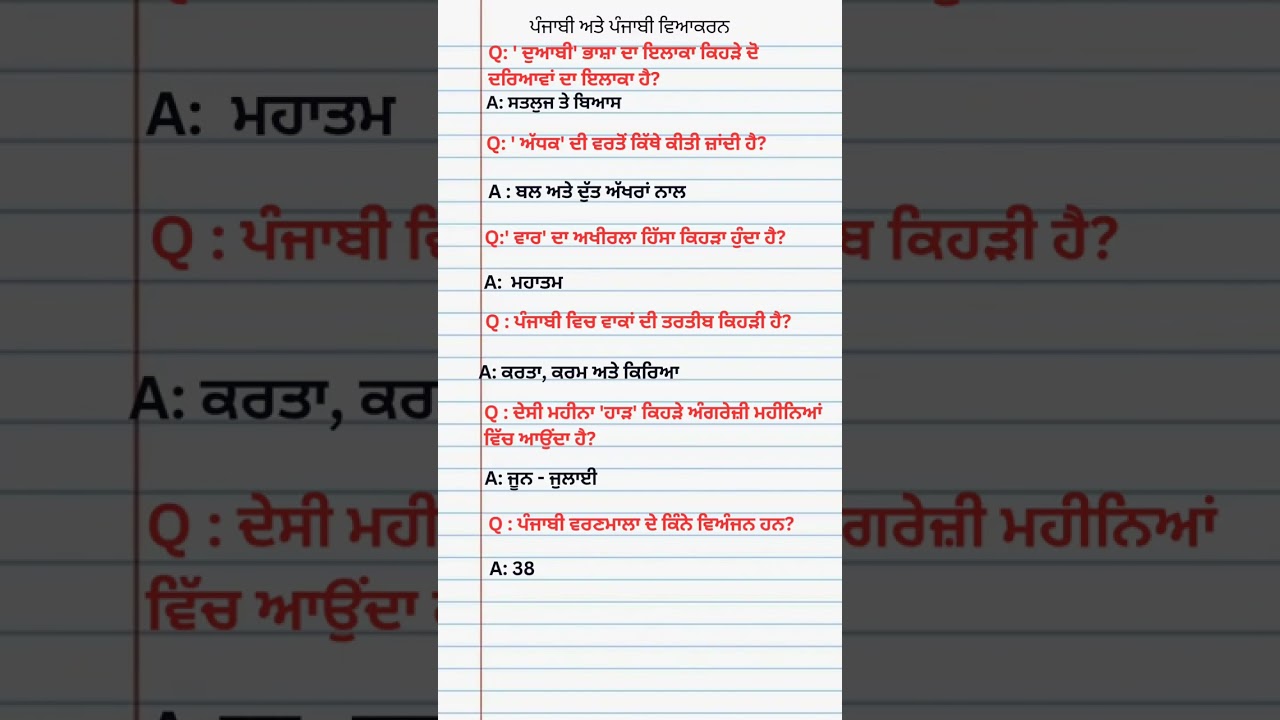 ਪੰਜਾਬੀ ਅਤੇ ਪੰਜਾਬੀ ਵਿਆਕਰਨ
Q: ' ਦੁਆਬੀ' ਭਾਸ਼ਾ ਦਾ ਇਲਾਕਾ ਕਿਹੜੇ ਦੋ
ਦਰਿਆਵਾਂ ਦਾ ਇਲਾਕਾ ਹੈ?
A: ਸਤਲੁਜ ਤੇ ਬਿਆਸ
Q: ' ਅੱਧਕ' ਦੀ ਵਰਤੋਂ ਕਿੱਥੇ ਕੀਤੀ ਜ਼ਾਂਦੀ ਹੈ?
A : ਬਲ ਅਤੇ ਦੁੱਤ ਅੱਖਰਾਂ ਨਾਲ
Q:' ਵਾਰ' ਦਾ ਅਖੀਰਲਾ ਹਿੱਸਾ ਕਿਹੜਾ ਹੁੰਦਾ ਹੈ?
A: ਮਹਾਤਮ
Q : ਪੰਜਾਬੀ ਵਿਚ ਵਾਕਾਂ ਦੀ ਤਰਤੀਬ ਕਿਹੜੀ ਹੈ?
A: ਕਰਤਾ, ਕਰਮ ਅਤੇ ਕਿਰਿਆ
Q : ਦੇਸੀ ਮਹੀਨਾ 'ਹਾੜ' ਕਿਹੜੇ ਅੰਗਰੇਜ਼ੀ ਮਹੀਨਿਆਂ
ਵਿੱਚ ਆਉਂਦਾ ਹੈ?
A: ਜੂਨ - ਜੁਲਾਈ
Q : ਪੰਜਾਬੀ ਵਰਣਮਾਲਾ ਦੇ ਕਿੰਨੇ ਵਿਅੰਜਨ ਹਨ?
A: 38
A: ਮਹਾਤਮ
Q : ਪੰਜਾਬੀ
ਕਿਹੜੀ ਹੈ?
A: ਕਰਤਾ,
Q : ਦੇਸੀ
ਅੰਗਰੇਜ਼ੀ ਮਹੀਨਿਆਂ
ਵਿੱਚ ਆਉਂਦਾ